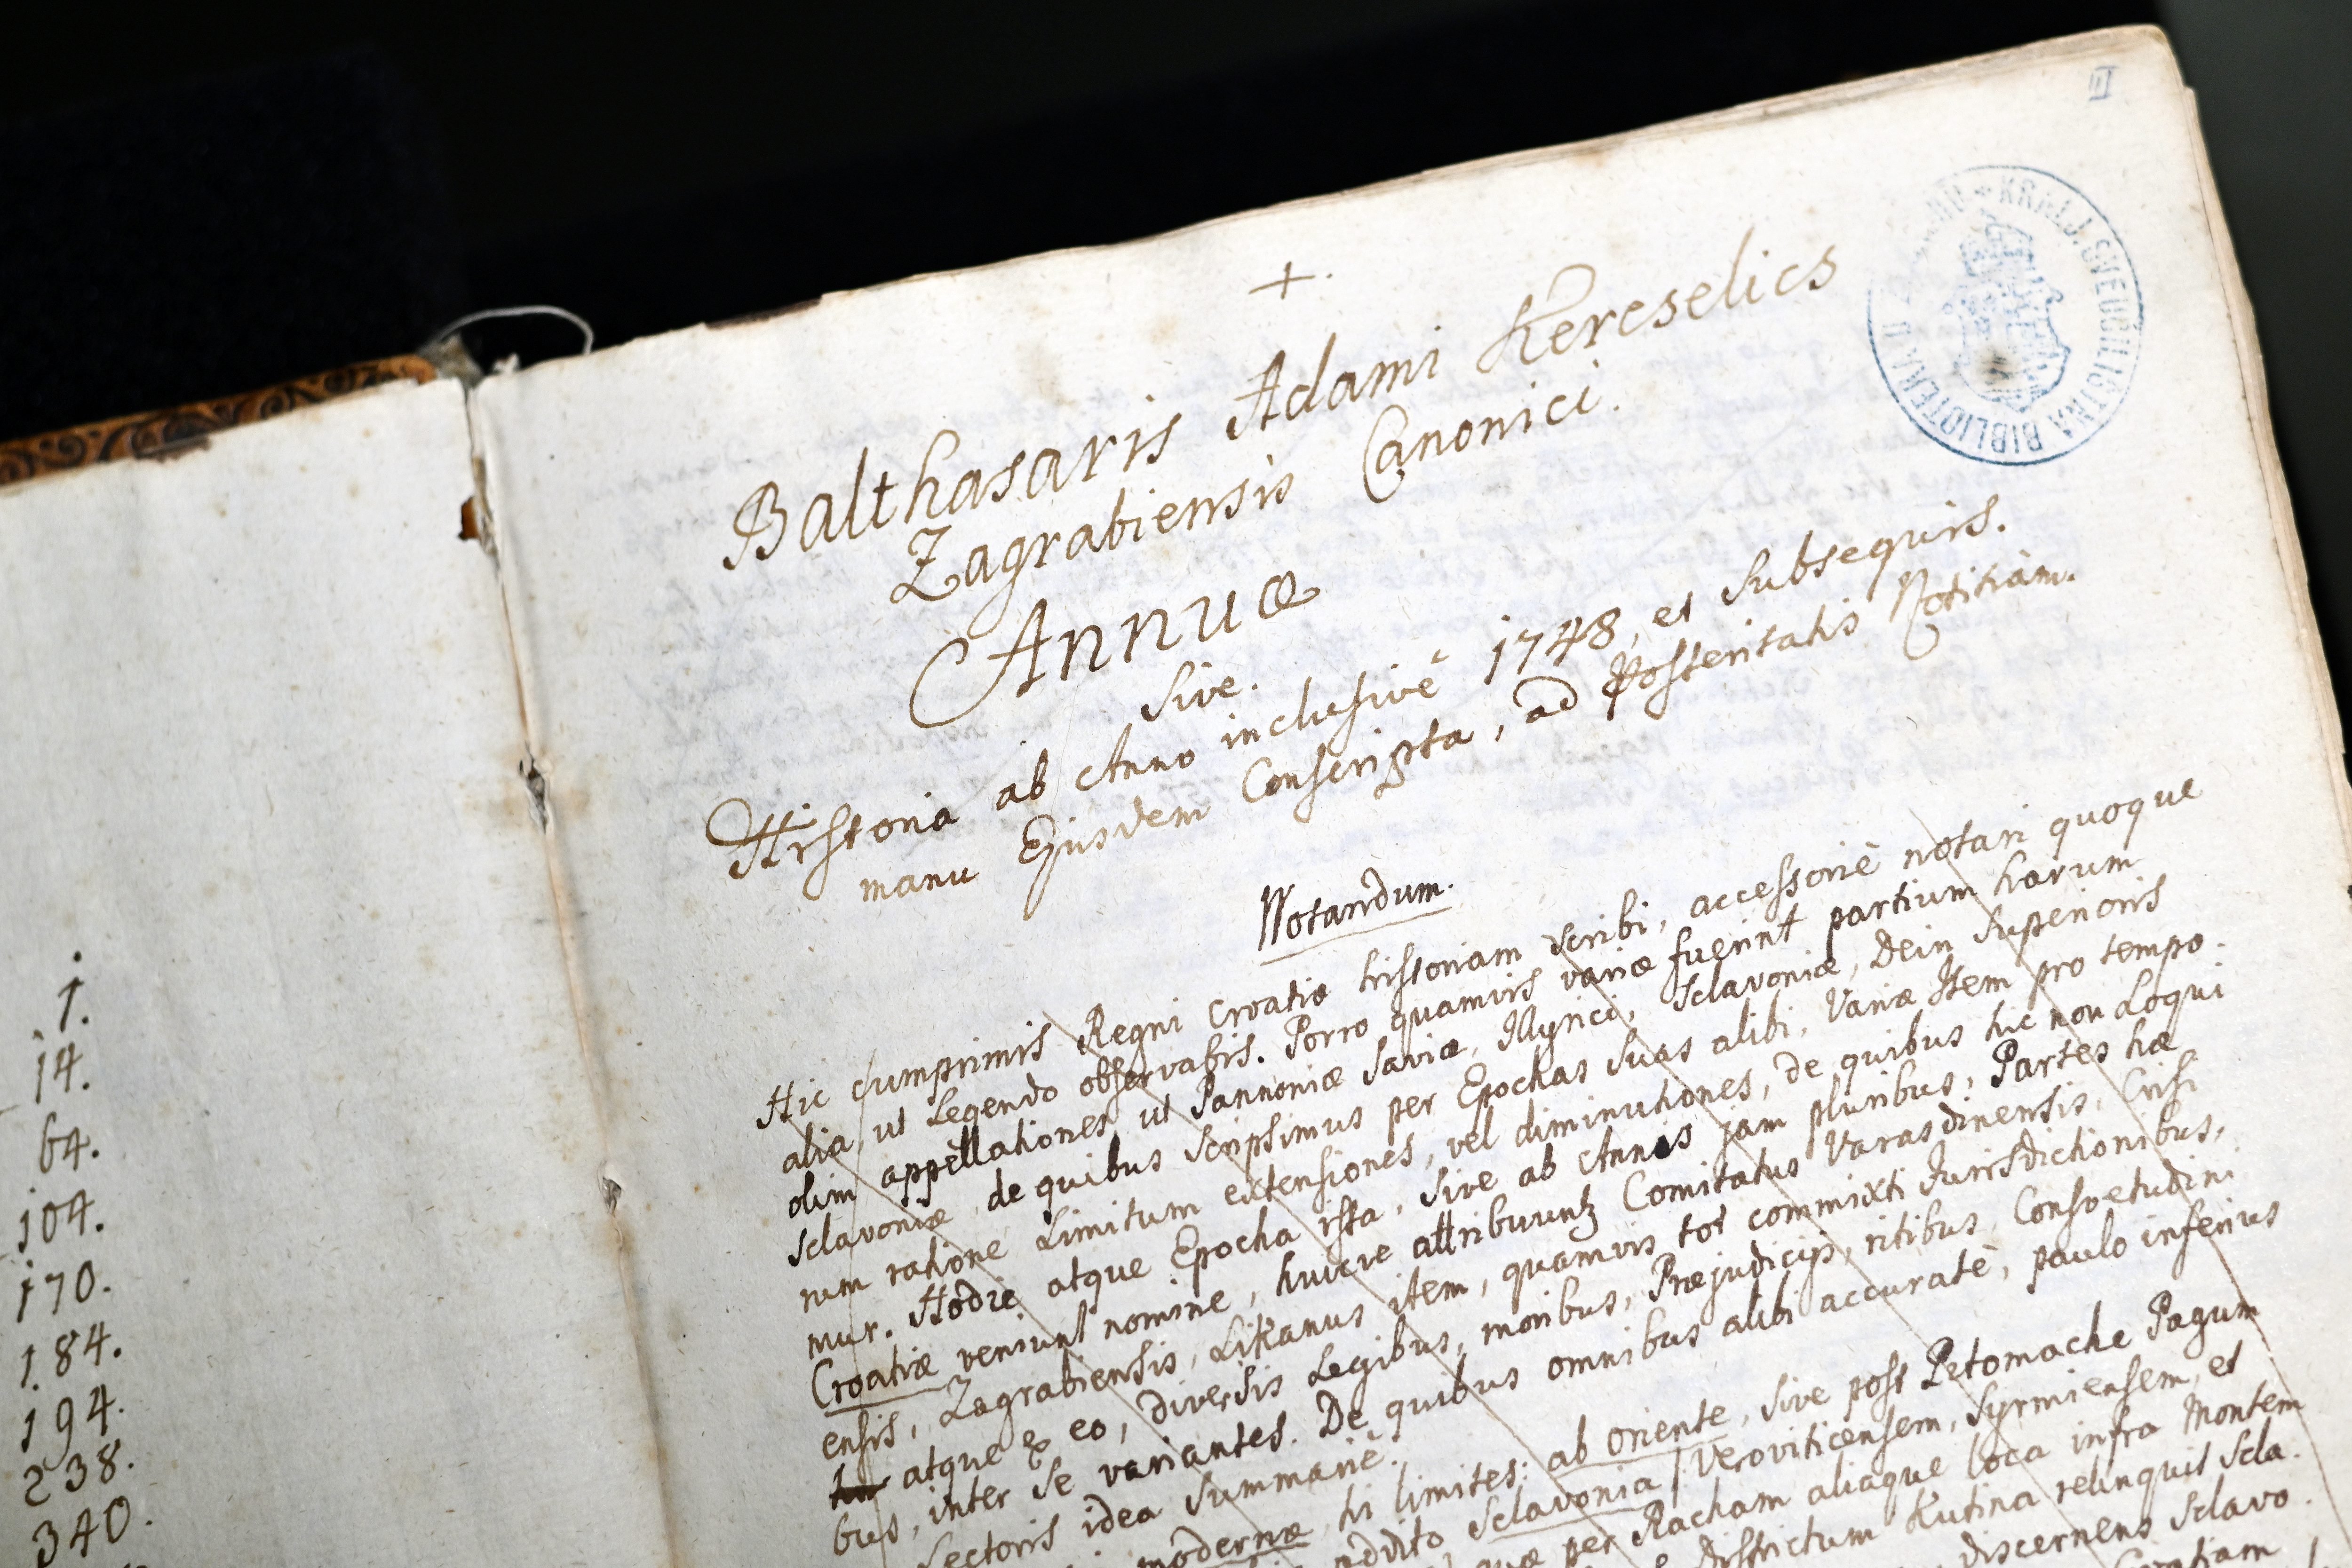 1.
14.
64.
104.
170.
184.
194.
238.
340.
III
KRALJ. SVEUČILIŠTNA BIBLIOTEKA U
+.
Balthasaris Adami Kereselics
Zagrabiensis Canonici.
Annuæ
sive.
Historia ab Anno inclusivè 1748, et subsequis.
manu Ejusdem Conscripta, ad Posteritatis Notitiam.
Notandum.
Hic cumprimis Regni Croatiæ historiam scribi, accessoriè notari quoque
alia, ut Legendo observabis. Porro quamvis variæ fuerint partium harum
olim appellationes, ut Pannoniæ Saviæ, Illyrici, Sclavoniæ, Dein Superioris
Sclavoniæ, de quibus scripsimus per Epochas suas alibi, Variæ Item pro tempo-
rum ratione Limitum extensiones, vel diminutiones, de quibus hic non Loqui
mur. Hodie atque Epocha ista, sive ab Annis jam pluribus, Partes hæ
Croatiæ veniunt nomine, huicve attribuuntz Comitatus Varasdinensis, Crisi
ensis, Zagrabiensis, Likanus item, quamvis tot commixti Jurisdictionibus,
atque ex eo, diversis Legibus, moribus, Præjudicijs, ritibus, Consvetudini
bus, inter se variantes. De quibus omnibus alibi accuratè, paulo inferius
Lectoris idea summariè.
modernæ, hi limites: ab oriente, sive post Petomache Pagum
addito Sclavonia / Veroviticensem, Syrmiensem, et
quæ per Racham aliaque loca infra Montem
Districtum Kutina relinquit Scla-
discernens Sclavo-
Croatiam